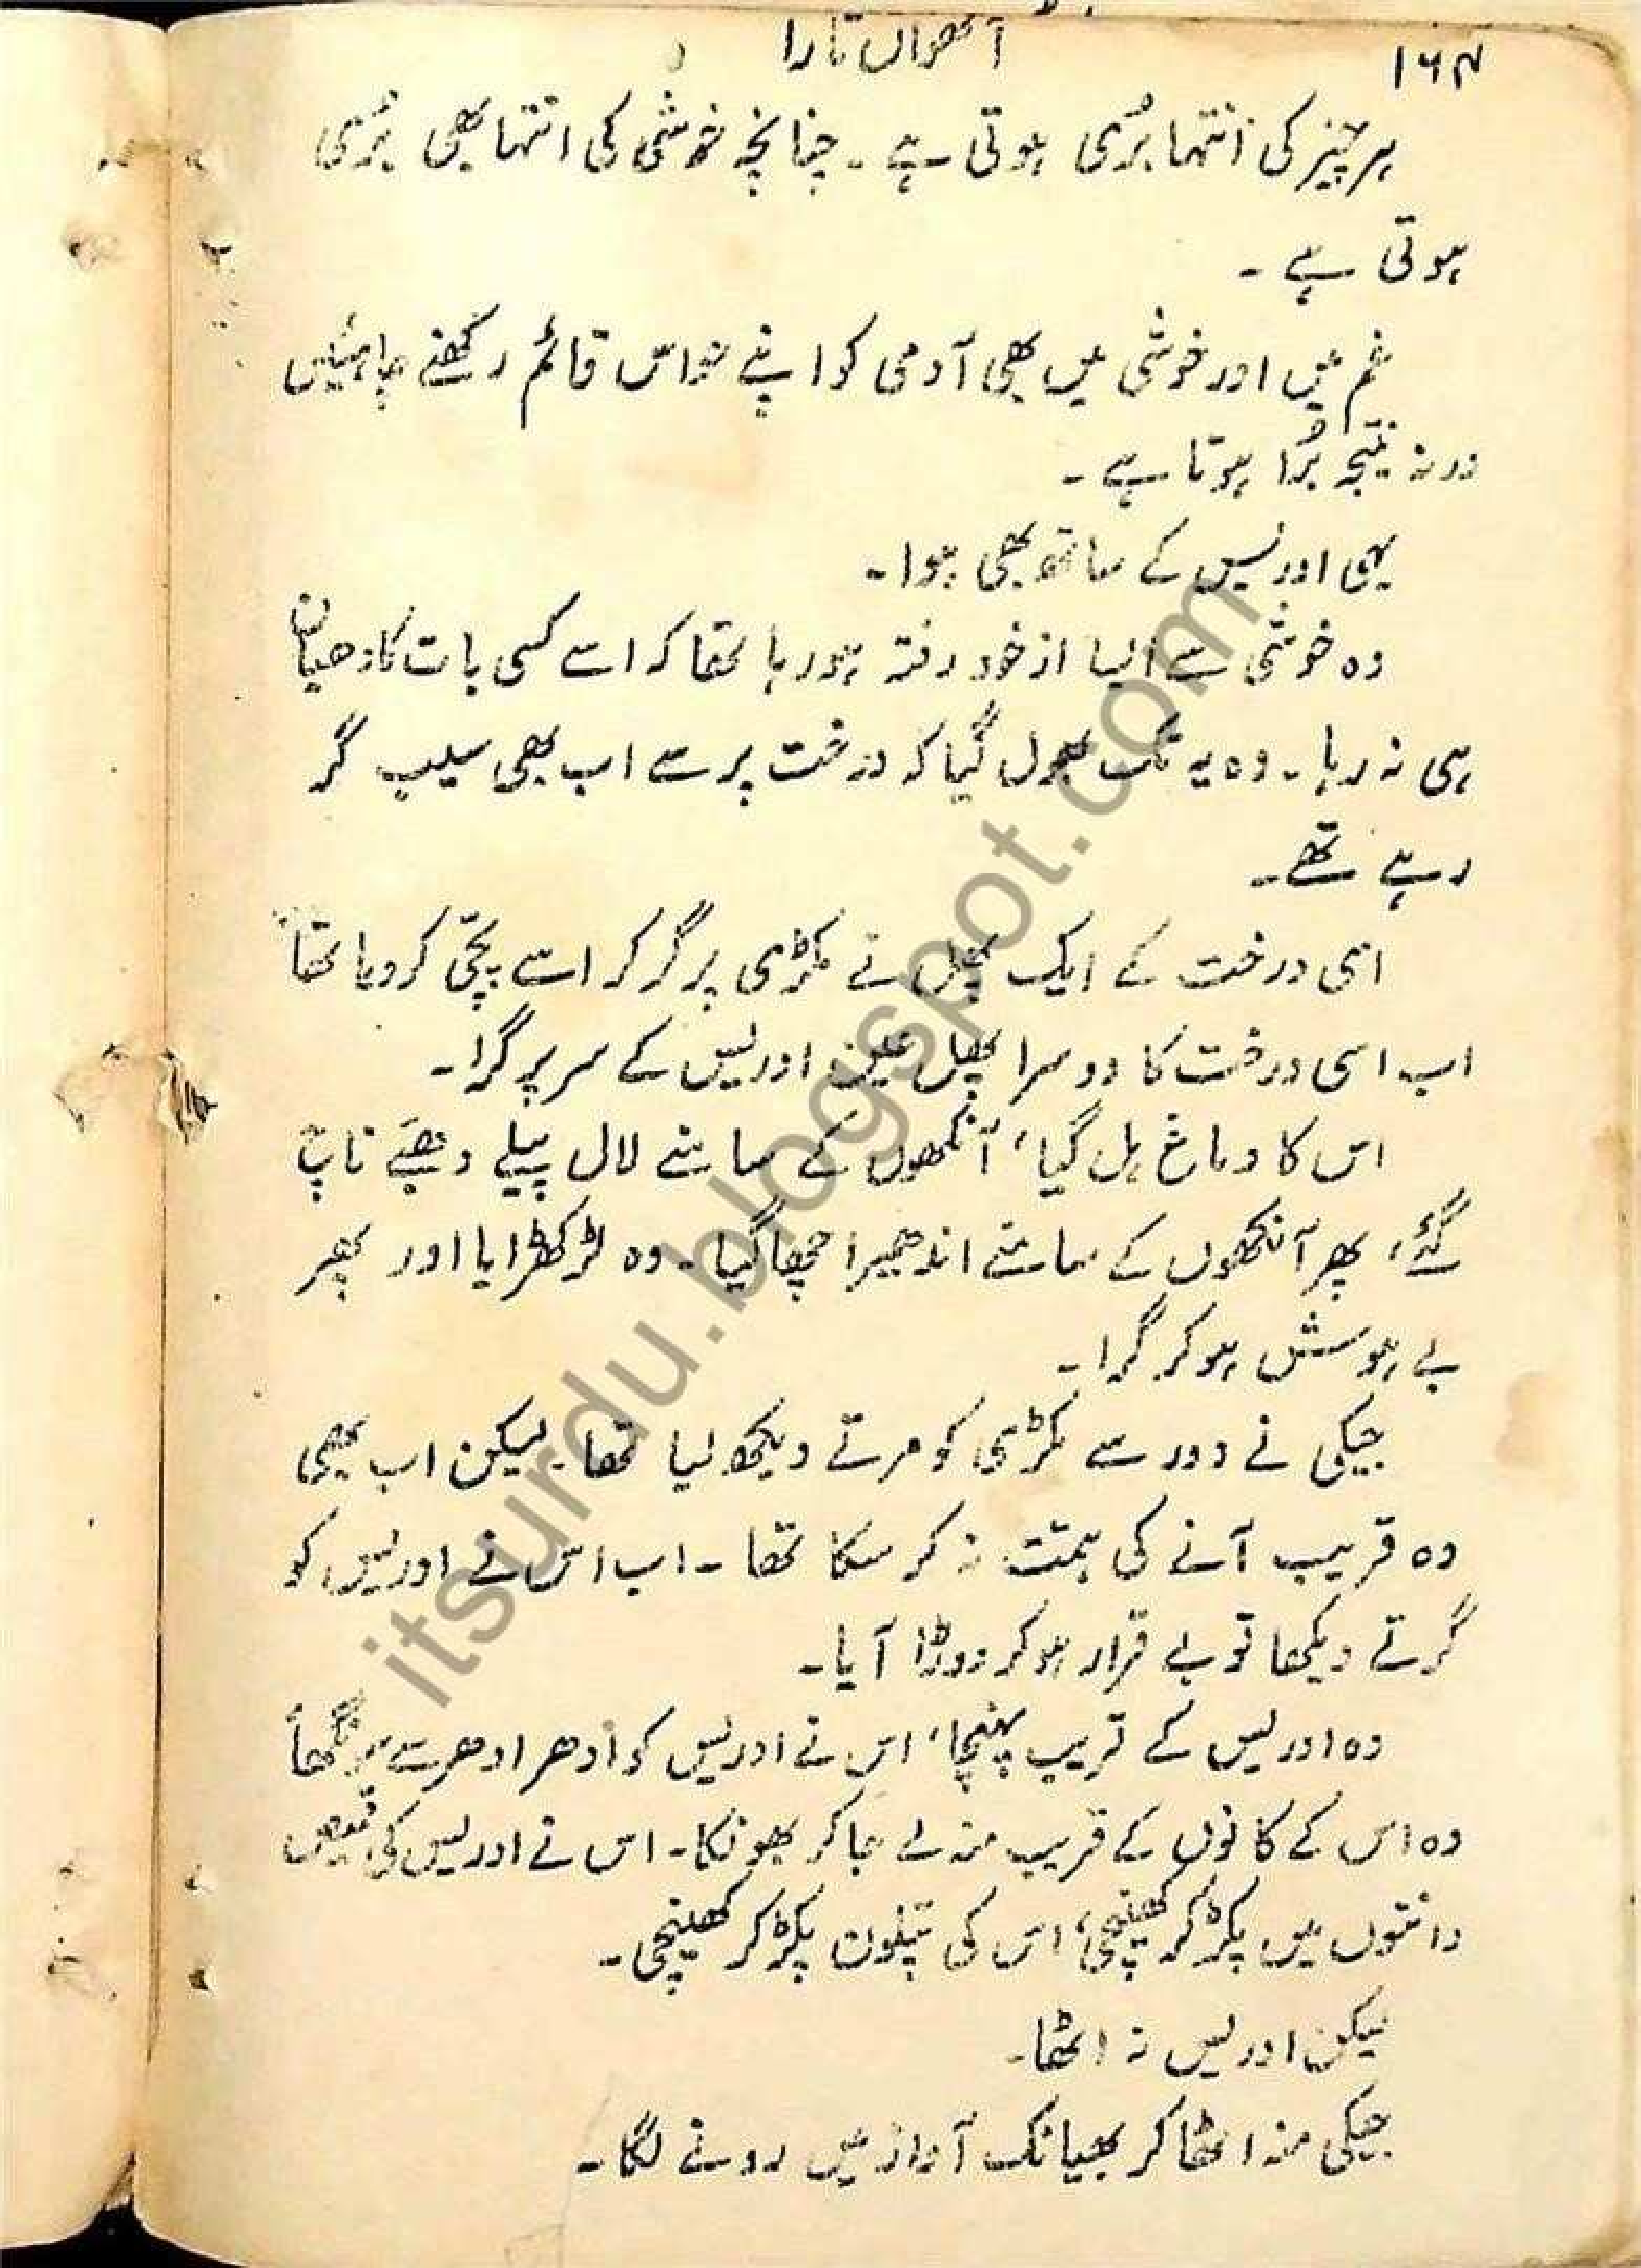 ۱۶۴
آٹھواں تارا
ہر چیز کی انتہا بُری ہوتی ہے ۔ چنانچہ خوشی کی انتہا بھی بُری
ہوتی ہے ۔
غم میں اور خوشی میں بھی آدمی کو اپنے حواس قائم رکھنے چاہئیں
ورنہ نتیجہ بُرا ہوتا ہے ۔
یہی ادریس کے ساتھ بھی ہوا ۔
وہ خوشی سے ایسا از خود رفتہ ہو رہا تھا کہ اسے کسی بات کا دھیان
ہی نہ رہا ۔ وہ یہ تک بھول گیا کہ درخت پر سے اب بھی سیب گر
رہے تھے ۔
اسی درخت کے ایک پھل نے مکڑی پر گر کر اسے پچّی کر دیا تھا
اب اسی درخت کا دوسرا پھل عین ادریس کے سر پر گرا ۔
اس کا دماغ ہل گیا، آنکھوں کے سامنے لال پیلے دھبّے ناچ
گئے، پھر آنکھوں کے سامنے اندھیرا چھا گیا ۔ وہ لڑکھڑایا اور پھر
بے ہوش ہو کر گرا ۔
جیکی نے دور سے مکڑی کو مرتے دیکھ لیا تھا ۔ لیکن اب بھی
وہ قریب آنے کی ہمّت نہ کر سکا تھا ۔ اب اس نے ادریس کو
گرتے دیکھا تو بے قرار ہو کر دوڑا آیا ۔
وہ ادریس کے قریب پہنچا، اس نے ادریس کو اُدھر ادھر سے سونگھا
وہ اس کے کانوں کے قریب منہ لے جا کر بھونکا ۔ اس نے ادریس کی قمیص
دانتوں میں پکڑ کر کھینچی، اس کی پتلون پکڑ کر کھینچی ۔
لیکن ادریس نہ اٹھا ۔
جیکی منہ اٹھا کر بھیانک آواز میں رونے لگا ۔
itsurdu.blogspot.com